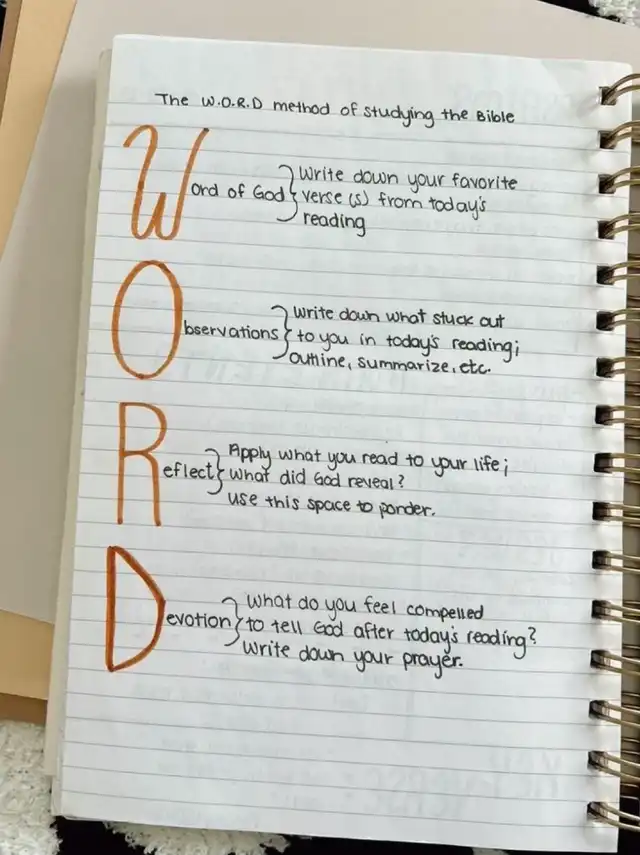 The W.O.R.D method of studying the Bible
Word of God } Write down your favorite
verse(s) from today's
reading
Observations } Write down what stuck out
to you in today's reading;
outline, summarize, etc.
Reflect } Apply what you read to your life;
what did God reveal?
use this space to ponder.
Devotion } What do you feel compelled
to tell God after today's reading?
Write down your prayer.